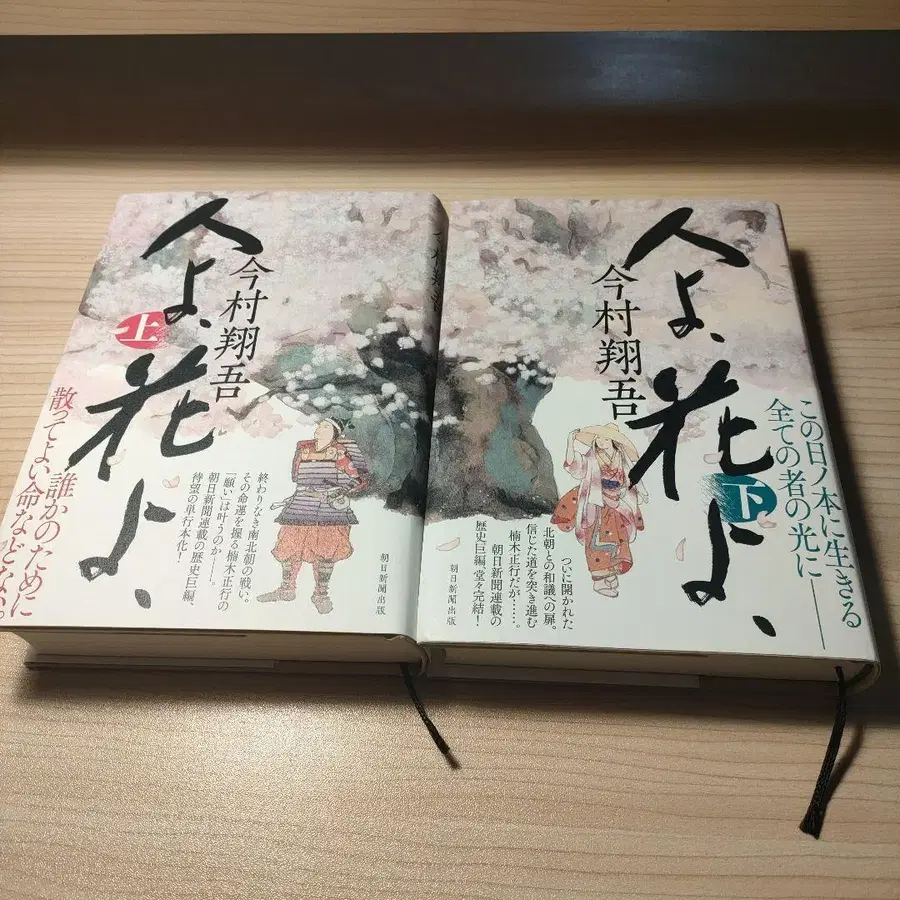 人よ、花よ、
今村翔吾
上
誰かのために
散ってよい命などない。
終わりなき南北朝の戦い。
その命運を握る楠木正行の
「願い」は叶うのか――。
朝日新聞連載の歴史巨編、
待望の単行本化!
朝日新聞出版
人よ、花よ、
今村翔吾
下
この日ノ本に生きる
全ての者の光に――
ついに開かれた
北朝との和議への扉。
信じた道を突き進む
楠木正行だが……。
朝日新聞連載の
歴史巨編、堂々完結!
朝日新聞出版